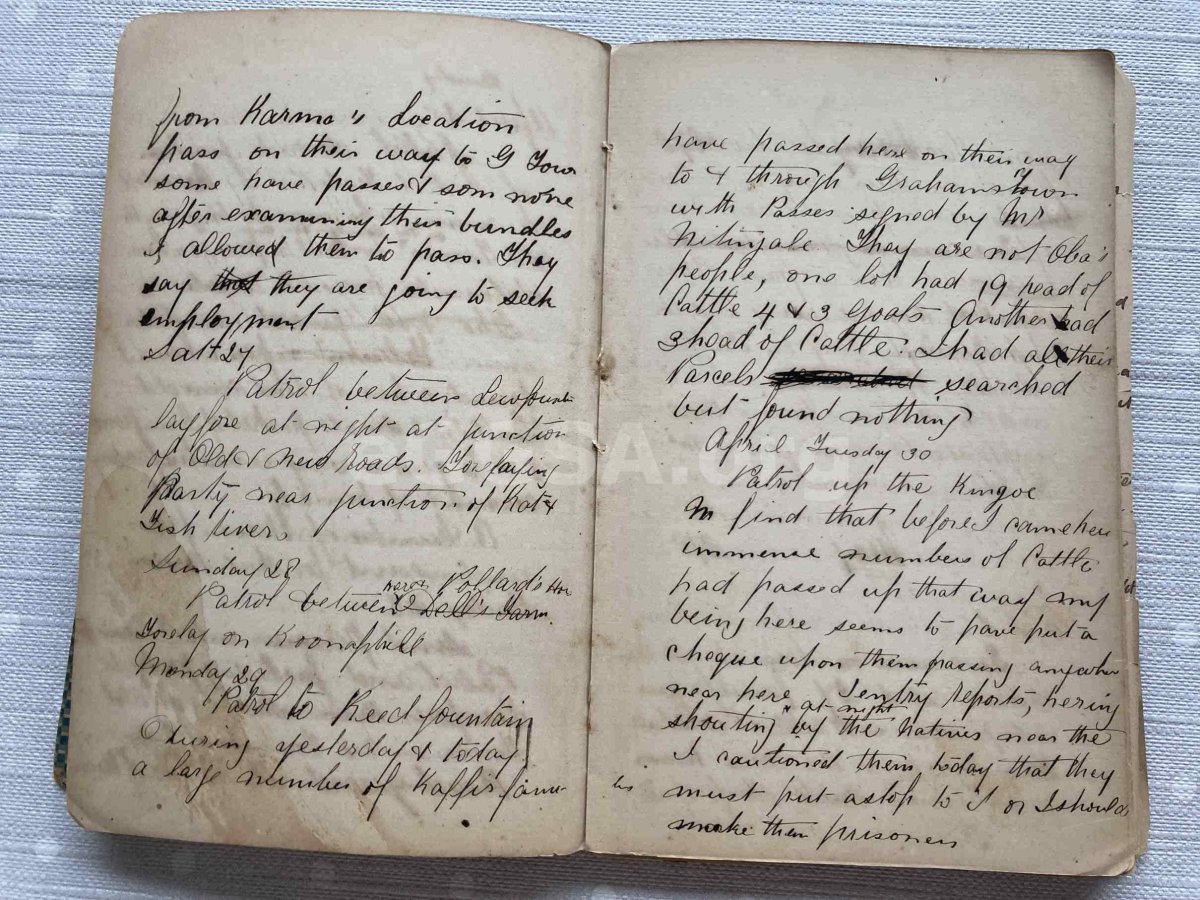 from Karma's Location
pass on their way to G Town
some have passes & som none
after examining their bundles
I allowed them to pass. They
say that they are going to seek
employment
Satt 27
Patrol between
layfore at night at junction
of Old & New Roads. Forelaying
Party near junction of Kat &
Fish rivers
Sunday 28
near Pollard's Hoe
Patrol between & Dell's Farm.
Forelay on Koonaphill
Monday 29
Patrol to Reed fountain
During yesterday & today
a large number of Kaffir fami-
lies
have passed here on their way
to & through Grahamstown
with Passes signed by Mr
Nitingale. They are not Oba's
people, one lot had 19 head of
Cattle 4 & 3 Goats Another had
3 head of Cattle. I had all their
Parcels searched
but found nothing
April Tuesday 30
Patrol up the Kingoe
find that before I came here
immense numbers of Cattle
had passed up that way my
being here seems to have put a
cheque upon them passing anywhere
near here. Sentry reports, hering
at night
shouting by the Natives near the
I cautioned them today that they
must put a stop to I or I should
make them prisoners
SA.org